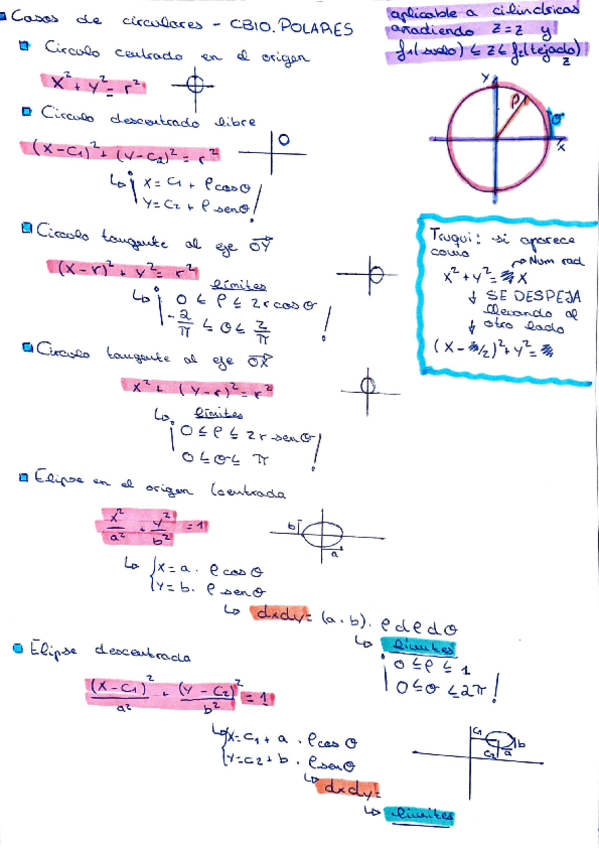 Casos de circulares - CBIO. POLARES
aplicable a cilindricas
añadiendo z=z y
f1(suelo) ≤ z ≤ f2(tejado)
z
Circulo centrado en el origen
x² + y² = r²
Circulo descentrado libre
(x-c1)² + (y-c2)² = r²
x = c1 + ρcosθ
y = c2 + ρsenθ
Y
ρ
θ
X
Circulo tangente al eje OY
(x-r)² + y² = r²
límites
0 ≤ ρ ≤ 2rcosθ
-2/π ≤ θ ≤ 2/π
Truqui: si aparece
como
Num rad
x² + y² = x
SE DESPEJA
llevando al
otro lado
(x- /2)² + y² =
Circulo tangente al eje OX
x² + (y-r)² = r²
límites
0 ≤ ρ ≤ 2r senθ
0 ≤ θ ≤ π
Elipse en el origen (centrada
x²/a² + y²/b² = 1
b
a
x = a · ρcosθ
y = b · ρsenθ
dxdy = (a·b) · ρdρdθ
límites
0 ≤ ρ ≤ 1
0 ≤ θ ≤ 2π
Elipse descentrada
(x-c1)²/a² + (y-c2)²/b² = 1
x = c1 + a · ρcosθ
y = c2 + b · ρsenθ
c1
b
c2
a
dxdy =
límites